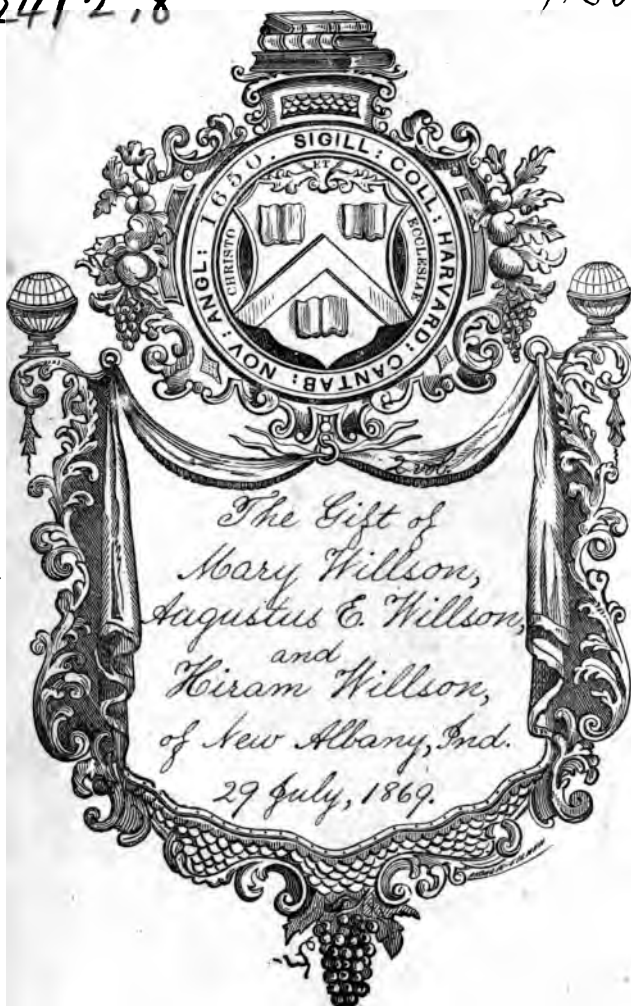 SIGILL: COLL: HARVARD: CANTAB: NOV: ANGL: 1650.
ET
CHRISTO
ECCLESIAE
2 vol.
The Gift of
Mary Willson,
Augustus E. Willson,
and
Hiram Willson,
of New Albany, Ind.
29 July, 1869.